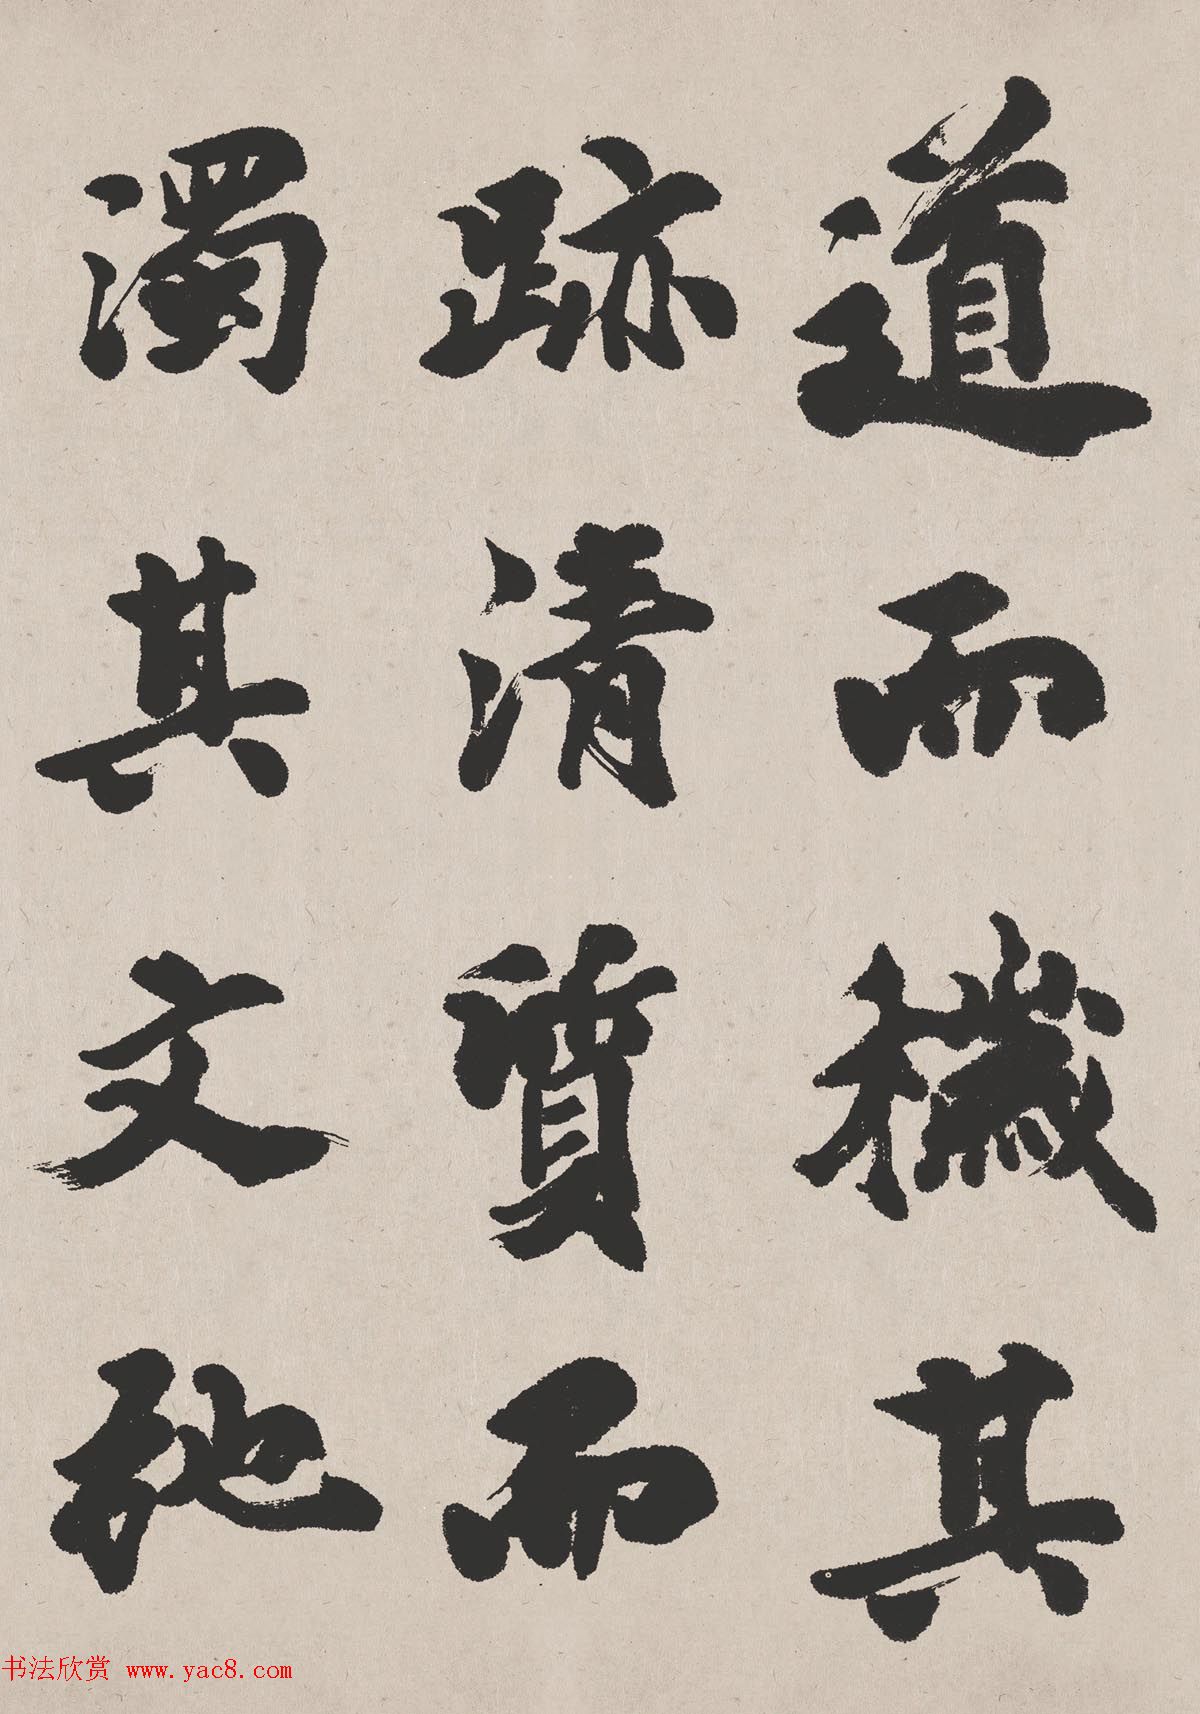 道而穢其
跡清質而
濁其文弛
书法欣赏 www.yac8.com